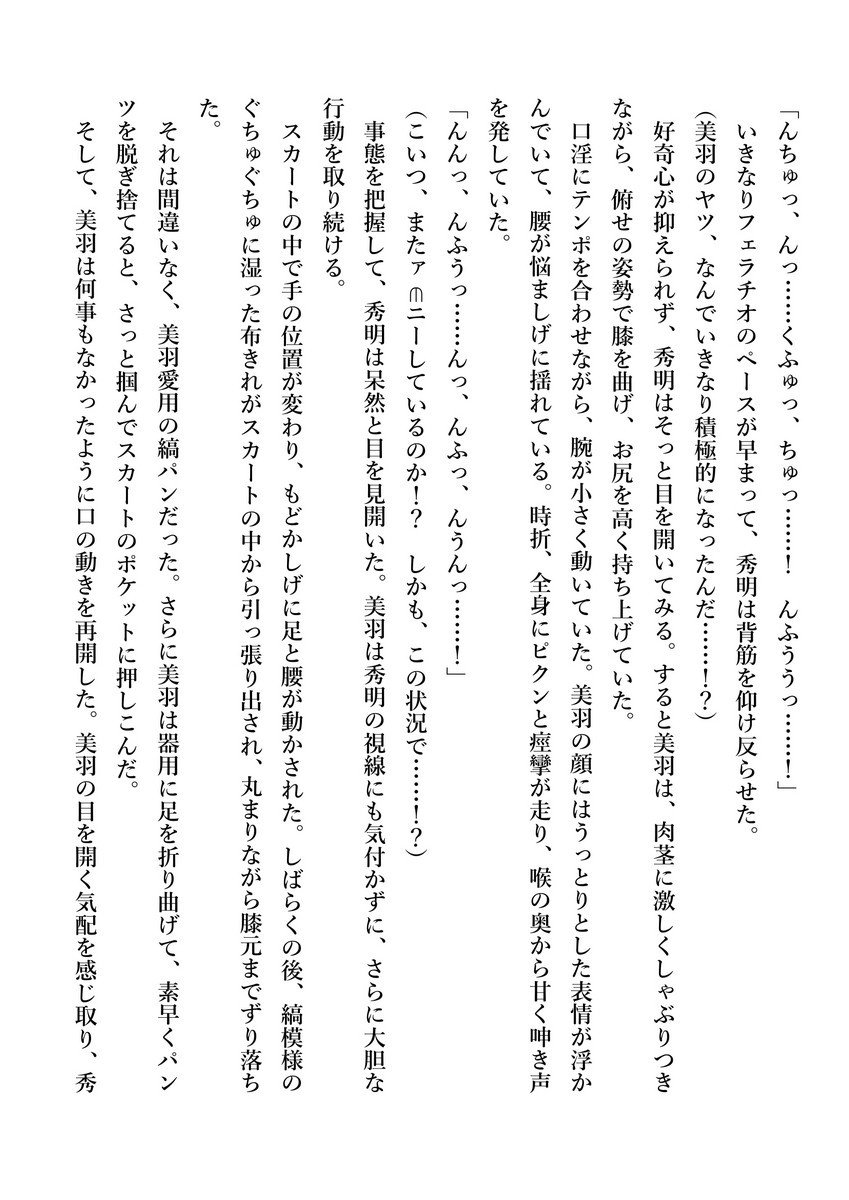 「んちゅっ、んっ……くふゅっ、ちゅっ……！　んふううっ……！」
　いきなりフェラチオのペースが早まって、秀明は背筋を仰け反らせた。
（美羽のヤツ、なんでいきなり積極的になったんだ……！？）
　好奇心が抑えられず、秀明はそっと目を開いてみる。すると美羽は、肉茎に激しくしゃぶりつき
ながら、俯せの姿勢で膝を曲げ、お尻を高く持ち上げていた。
　口淫にテンポを合わせながら、腕が小さく動いていた。美羽の顔にはうっとりとした表情が浮か
んでいて、腰が悩ましげに揺れている。時折、全身にピクンと痙攣が走り、喉の奥から甘く呻き声
を発していた。
「んんっ、んふうっ……んっ、んふっ、んうんっ……！」
（こいつ、またァ ニーしているのか！？　しかも、この状況で……！？）
　事態を把握して、秀明は呆然と目を見開いた。美羽は秀明の視線にも気付かずに、さらに大胆な
行動を取り続ける。
　スカートの中で手の位置が変わり、もどかしげに足と腰が動かされた。しばらくの後、縞模様の
ぐちゅぐちゅに湿った布きれがスカートの中から引っ張り出され、丸まりながら膝元までずり落ち
た。
　それは間違いなく、美羽愛用の縞パンだった。さらに美羽は器用に足を折り曲げて、素早くパン
ツを脱ぎ捨てると、さっと掴んでスカートのポケットに押しこんだ。
　そして、美羽は何事もなかったように口の動きを再開した。美羽の目を開く気配を感じ取り、秀